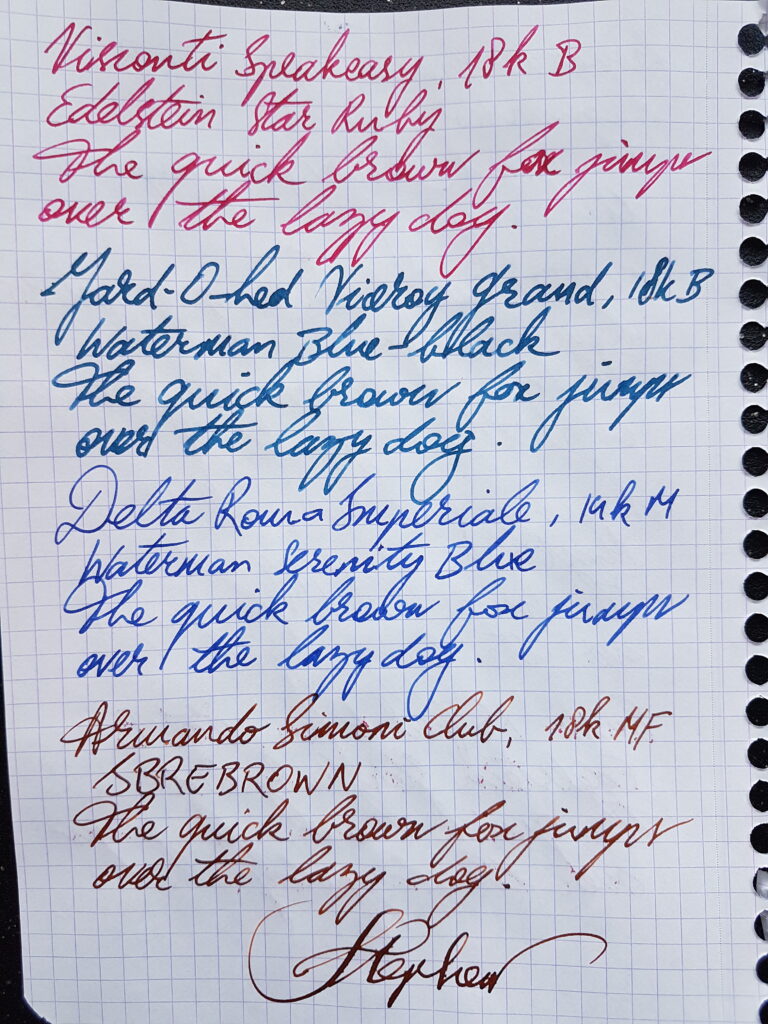 Visconti Speakeasy, 18k B
Edelstein Star Ruby
The quick brown fox jumps
over the lazy dog.
Yard-O-Led Viceroy Grand, 18k B
Waterman Blue-black
The quick brown fox jumps
over the lazy dog.
Delta Roma Imperiale, 14k M
Waterman Serenity Blue
The quick brown fox jumps
over the lazy dog.
Armando Simoni Club, 18k MF
SBREBROWN
The quick brown fox jumps
over the lazy dog.
Stephen